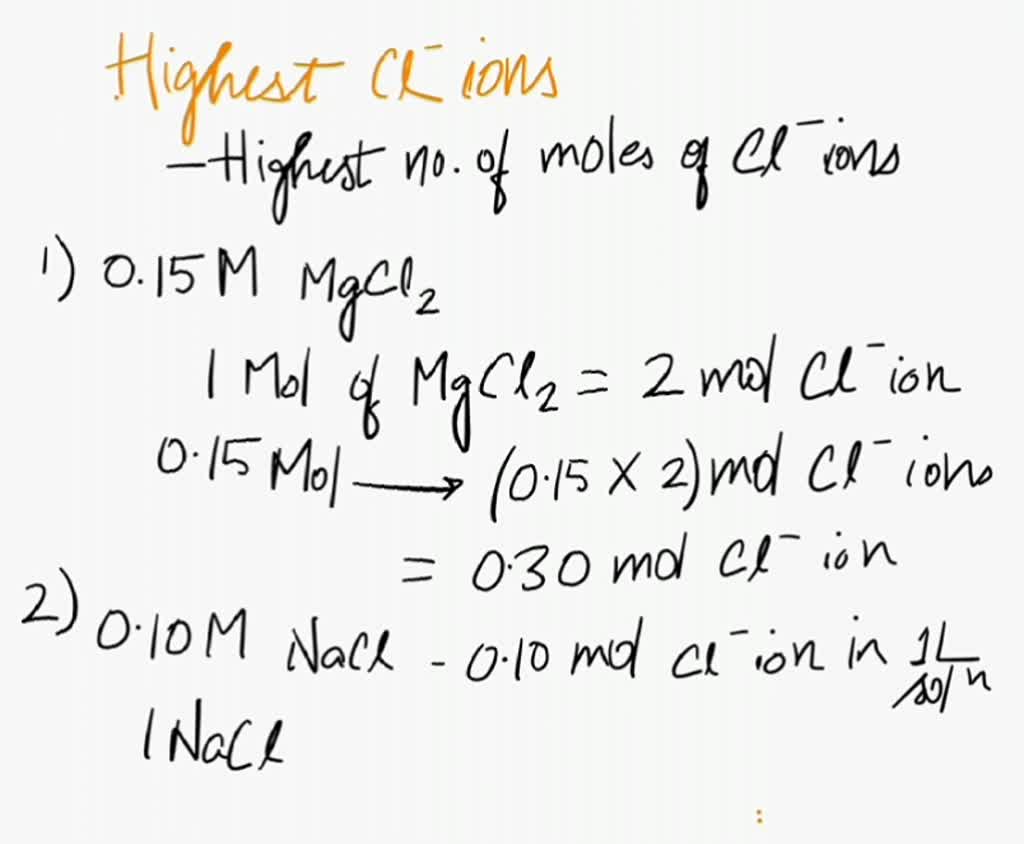 Highest Cl⁻ ions
- Highest no. of moles of Cl⁻ ions
1) 0.15 M MgCl₂
1 Mol of MgCl₂ = 2 mol Cl⁻ ion
0.15 Mol ⟶ (0.15 X 2) mol Cl⁻ ions
= 0.30 mol Cl⁻ ion
2) 0.10 M NaCl - 0.10 mol Cl⁻ ion in 1L solⁿ
1 NaCl